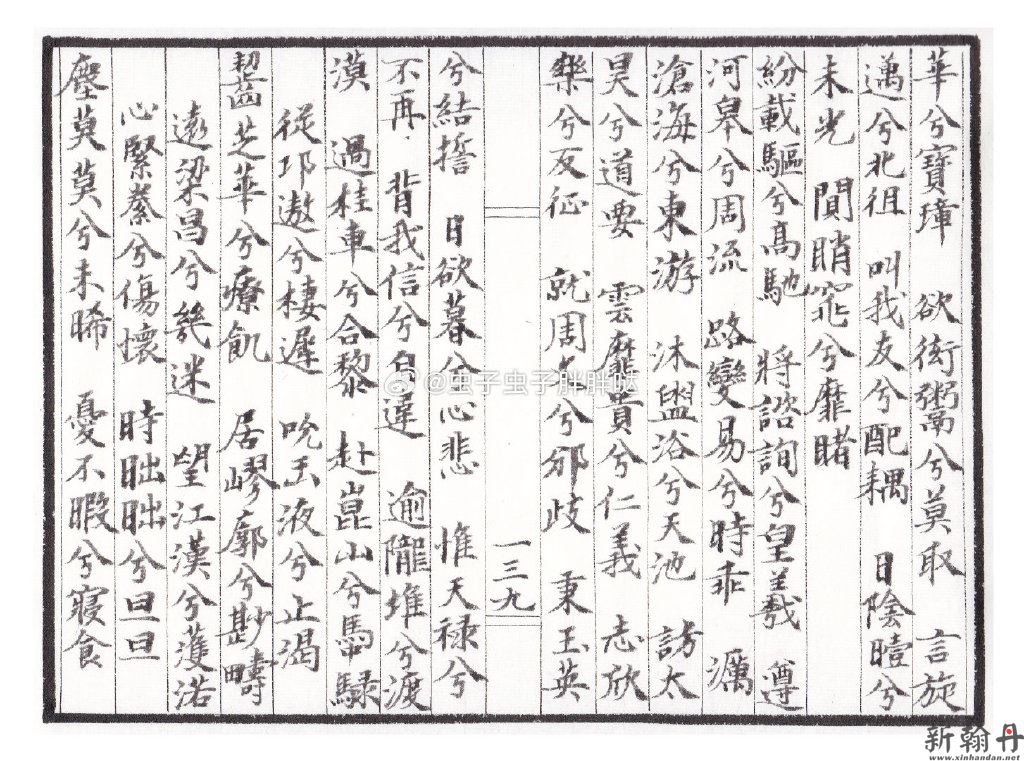 華兮寶璋 欲衒鬻兮莫取 言旋
邁兮北徂 叫我友兮配耦 日陰曀兮
未光 閴睄窕兮靡睹
紛載驅兮高馳 將諮詢兮皇羲 遵
河皋兮周流 路變易兮時乖 濿
滄海兮東游 沐盥浴兮天池 訪太
昊兮道要 云靡貴兮仁義 志欣
樂兮反征 就周文兮邠歧 秉玉英
一三九
兮結誓 日欲暮兮心悲 惟天祿兮
不再 背我信兮自違 逾隴堆兮渡
漠 過桂車兮合黎 赴崑山兮馬騄
從邛遨兮棲遲 吮玉液兮止渴
齧芝華兮療飢 居嵺廓兮尠疇
遠梁昌兮幾迷 望江漢兮濩渃
心緊絭兮傷懷 時昢昢兮旦旦
塵莫莫兮未晞 憂不暇兮寢食
@虫子虫子胖胖哒
新翰丹
www.xinhandan.net